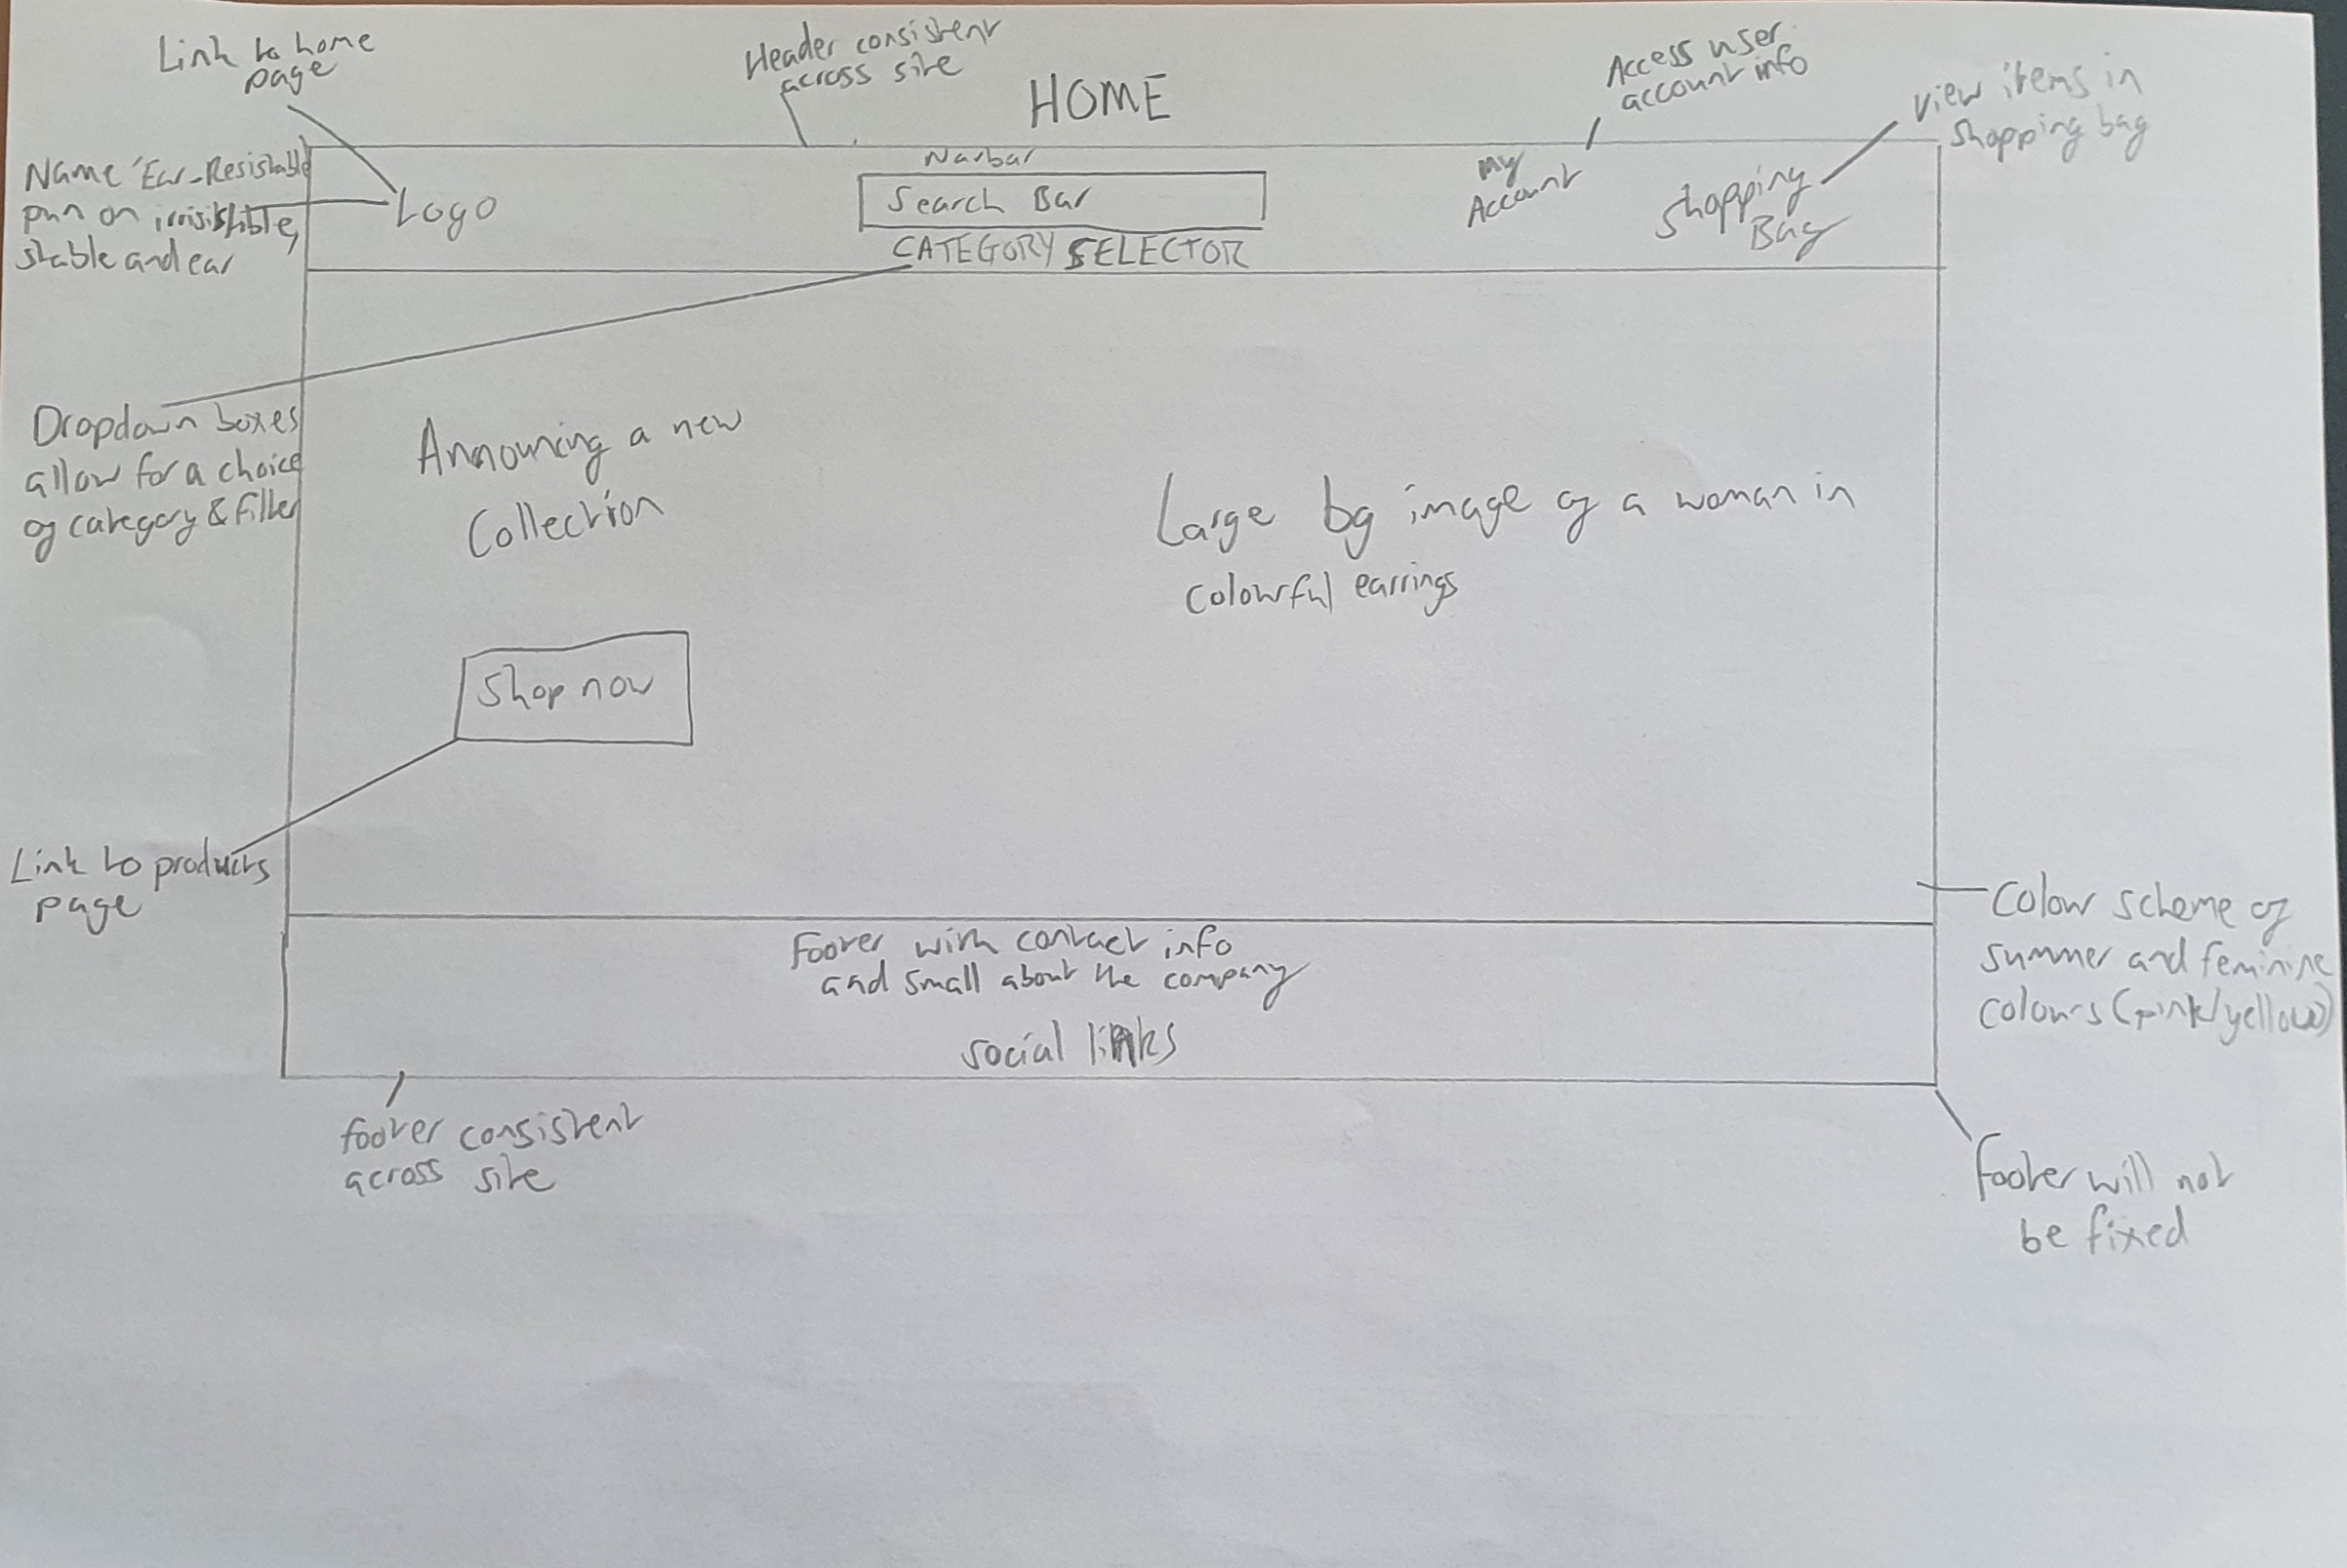 Link to home
page
Header consistent
across site
HOME
Access user
account info
View items in
shopping bag
Name 'Ear-Resistable
pun on irrisistible,
stable and ear
Logo
Navbar
Search Bar
CATEGORY SELECTOR
My
Account
Shopping
Bag
Dropdown boxes
allow for a choice
of category & filter
Announcing a new
Collection
Large bg image of a woman in
colourful earrings
Shop now
Link to products
page
Footer with contact info
and small about the company
social links
Colour scheme of
summer and feminine
colours (pink/yellow)
footer consistent
across site
Footer will not
be fixed